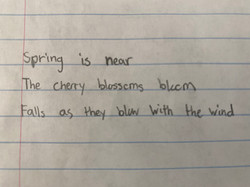 Spring is near
The cherry blossoms bloom
Falls as they blow with the wind